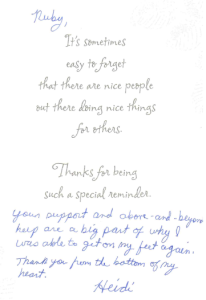 Ruby,
It's sometimes
easy to forget
that there are nice people
out there doing nice things
for others.
Thanks for being
such a special reminder.
Your support and above-and-beyond
help are a big part of why I
was able to get on my feet again.
Thank you from the bottom of my
heart.
Heidi